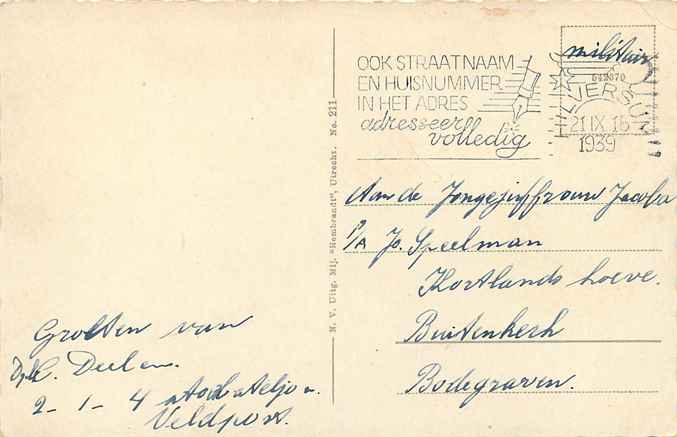 OOK STRAATNAAM
EN HUISNUMMER
IN HET ADRES
adresseer
volledig
militair
HILVERSUM
21 IX 16
1939
N. V. Uitg. Mij. "Rembrandt", Utrecht. No. 211
Aan de Jongejuffrouw Jacoba
P/A Jo. Speelman
Kortlands hoeve.
Buitenkerk
Bodegraven.
Groeten van
C. Deelen.
2-1-4
Veldpost.